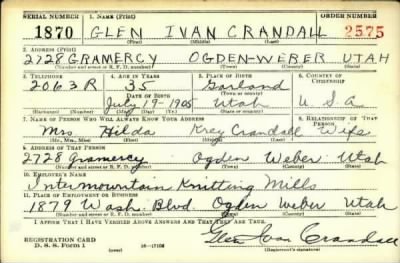 SERIAL NUMBER 1. NAME (Print) ORDER NUMBER
1870 GLEN IVAN CRANDALL 2575
(First) (Middle) (Last)
2. ADDRESS (Print)
2728 GRAMERCY OGDEN-WEBER UTAH
(Number and street or R. F. D. number) (Town) (County) (State)
3. TELEPHONE 4. AGE IN YEARS 5. PLACE OF BIRTH 6. COUNTRY OF CITIZENSHIP
2063R 35 Garland
DATE OF BIRTH (Town or county)
July 19-1905 Utah U.S.A
(Exchange) (Number) (Mo.) (Day) (Yr.) (State or country)
7. NAME OF PERSON WHO WILL ALWAYS KNOW YOUR ADDRESS 8. RELATIONSHIP OF THAT PERSON
Mrs Hilda Krey Crandall Wife
(Mr., Mrs., Miss) (First) (Middle) (Last)
9. ADDRESS OF THAT PERSON
2728 Gramercy Ogden Weber Utah
(Number and street or R. F. D. number) (Town) (County) (State)
10. EMPLOYER'S NAME
Intermountain Knitting Mills
11. PLACE OF EMPLOYMENT OR BUSINESS
1879 Wash. Blvd. Ogden Weber Utah
(Number and street or R. F. D. number) (Town) (County) (State)
I AFFIRM THAT I HAVE VERIFIED ABOVE ANSWERS AND THAT THEY ARE TRUE.
Glen Ivan Crandall
REGISTRATION CARD
D. S. S. Form 1 (over) 16-17105 (Registrant's signature)